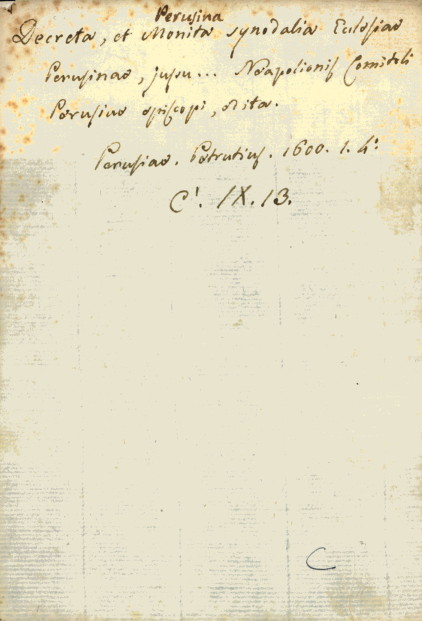 Perusina
Decreta, et Monita synodalia Eclesiae
Perusinae, jussu... Neapolionis Comitoli
Perusiae episcopi, edita.
Perusiae. Petrutius. 1600. 1. 4.°
C'. IX. 13.
C